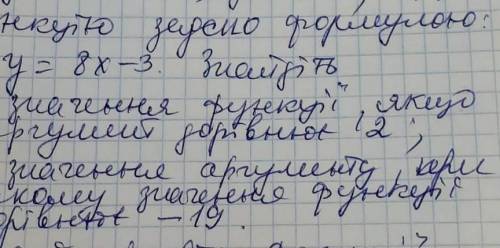 нкцію задано формулою:
y = 8x - 3. Знайдіть
значення функції, якщо
ргумент дорівнює 2;
значення аргументу, при
кому значення функції
орівнює -19.